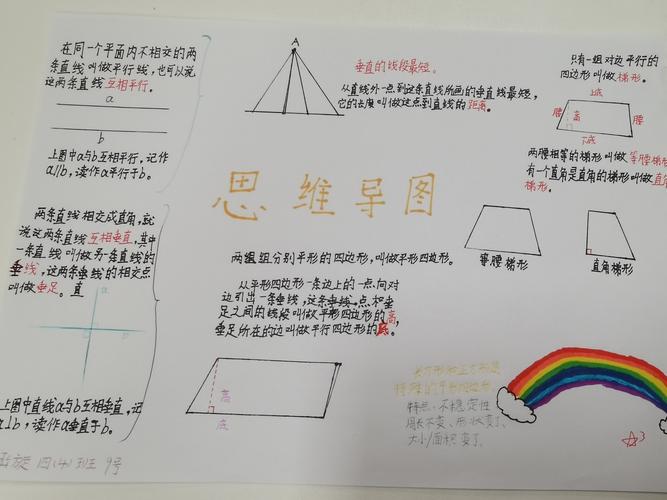 在同一个平面内不相交的两
条直线叫做平行线,也可以说
这两条直线互相平行。
a
b
上图中a与b互相平行,记作
a∥b,读作a平行于b。
两条直线相交成直角,就
说这两条直线互相垂直,其中
一条直线叫做另一条直线的
垂线,这两条垂线的相交点
叫做垂足。直
上图中直线a与b互相垂直,记
a⊥b,读作a垂直于b。
四(4)班 9号
A
垂直的线段最短。
从直线外一点到这条直线所画的垂直线最短,
它的长度叫做这点到直线的距离。
思维导图
两组组分别平形的四边形,叫做平形四边形。
从平形四边形一条边上的一点向对
边引出一条垂线,这条垂线点和垂
足之间的线段叫做平形四边形的高,
垂足所在的边叫做平行四边形的底。
高
底
只有一组对边平行的
四边形叫做梯形。
上底
腰
高
腰
下底
两腰相等的梯形叫做等腰梯形
有一个直角是直角的梯形叫做直角
梯形。
等腰梯形
直角梯形
长方形和正方形是
特殊的平形四边形。
特点:不稳定性
周长不变、形状变了、
大小/面积变了